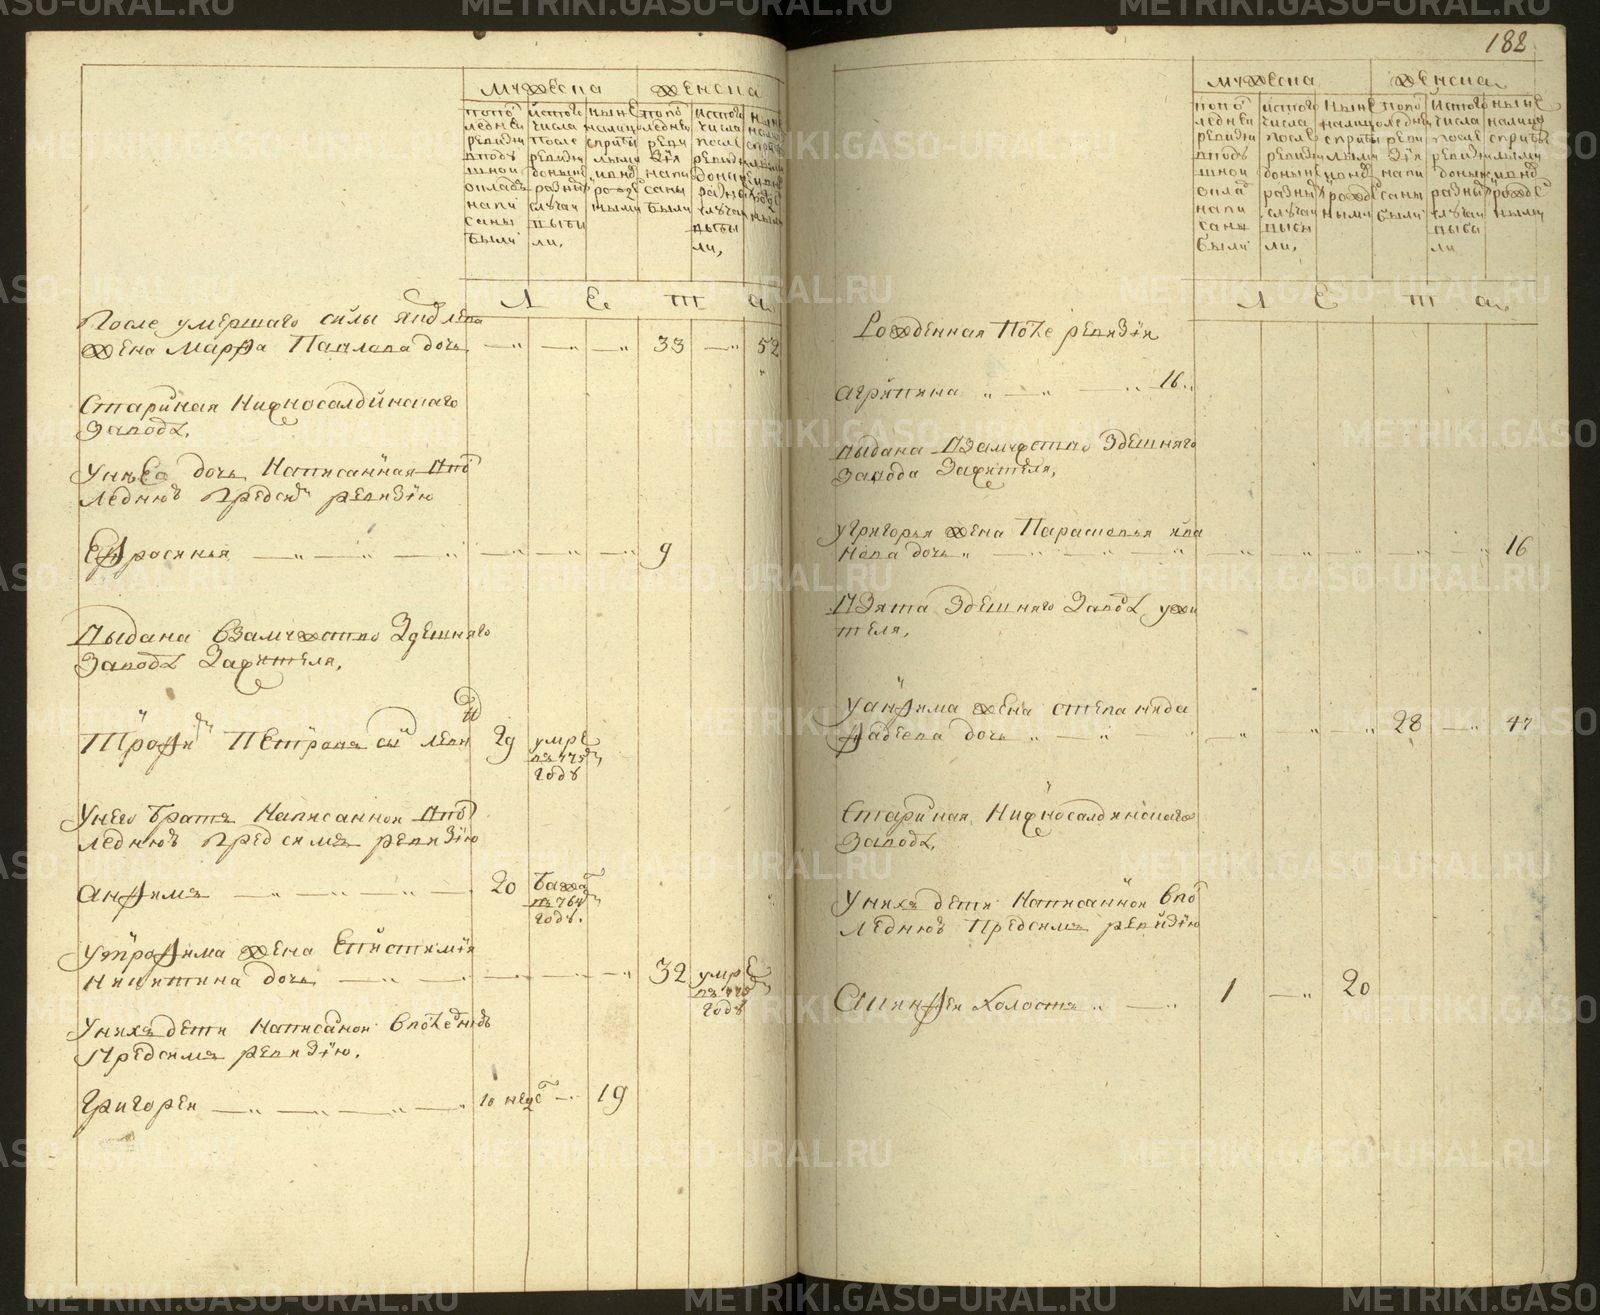 182
мужеска
женска
попо
следней
ревизии
вподу
шной
окладъ
напи
саны
были
истого
числа
после
ревизии
доныне
разныхъ
случай
выбы
ли,
ныне
налицо
сприбы
лыми
ивно
рожде
ными
попо
следней
реви
зiи
напи
саны
были
истого
числа
после
ревизии
доныне
разных
случай
выбы
ли,
Л е т а
После умершаго силы яковлева
жена Марфа Павлова дочь — — — 33 — 52
Старинная Нижносалдинскаго
завода,
Унихъ дочь Написанная впо
следнюю Предсимъ ревизiю
Ефросинья — — — — — — 9
Выдана взамужство Здешняго
завода Зажителя,
Трофимъ Петровъ сынъ 29 умре
въ 775
годъ
Унего братъ Написанной впо
следнюю Предсимъ ревизiю
Анфимъ — — — — 20 бежа
въ 764
годъ.
Утрофима жена Епистимiя
Никитина дочь — — — — — 32 умре
въ 775
годъ
Унихъ дети Написаной впоследнюю
Предсимъ ревизiю.
Григорей — — — — 10 неде — 19
мужеска
женска
попо
следней
ревизии
вподу
шной
окла
напи
саны
были
истого
числа
после
ревизии
доныне
разных
случай
выбы
ли,
ныне
налицо
сприбы
лыми
ивно
рожде
ными
попо
следней
реви
зiи
напи
саны
были
истого
числа
после
ревизии
доныне
разных
случай
выбы
ли
ныне
налицо
сприбы
лыми
ивно
рожде
ными
Л е т а
Рожденная После ревизiи
Агрипина — — 16
выдана взамужство Здешняго
завода Зажителя,
Угригорья жена Парасковья ива
нова дочь — — — — — — — — 16
Взята Здешняго завода ужи
теля,
Уанфима жена степанида
фадеева дочь — — — — 28 — 47
Старинная Нижносалдинскаго
завода,
Унихъ дети Написанной впо
следнюю Предсимъ ревизiю
Акинфей холостъ — 1 — 20
METRIKI.GASO-URAL.RU